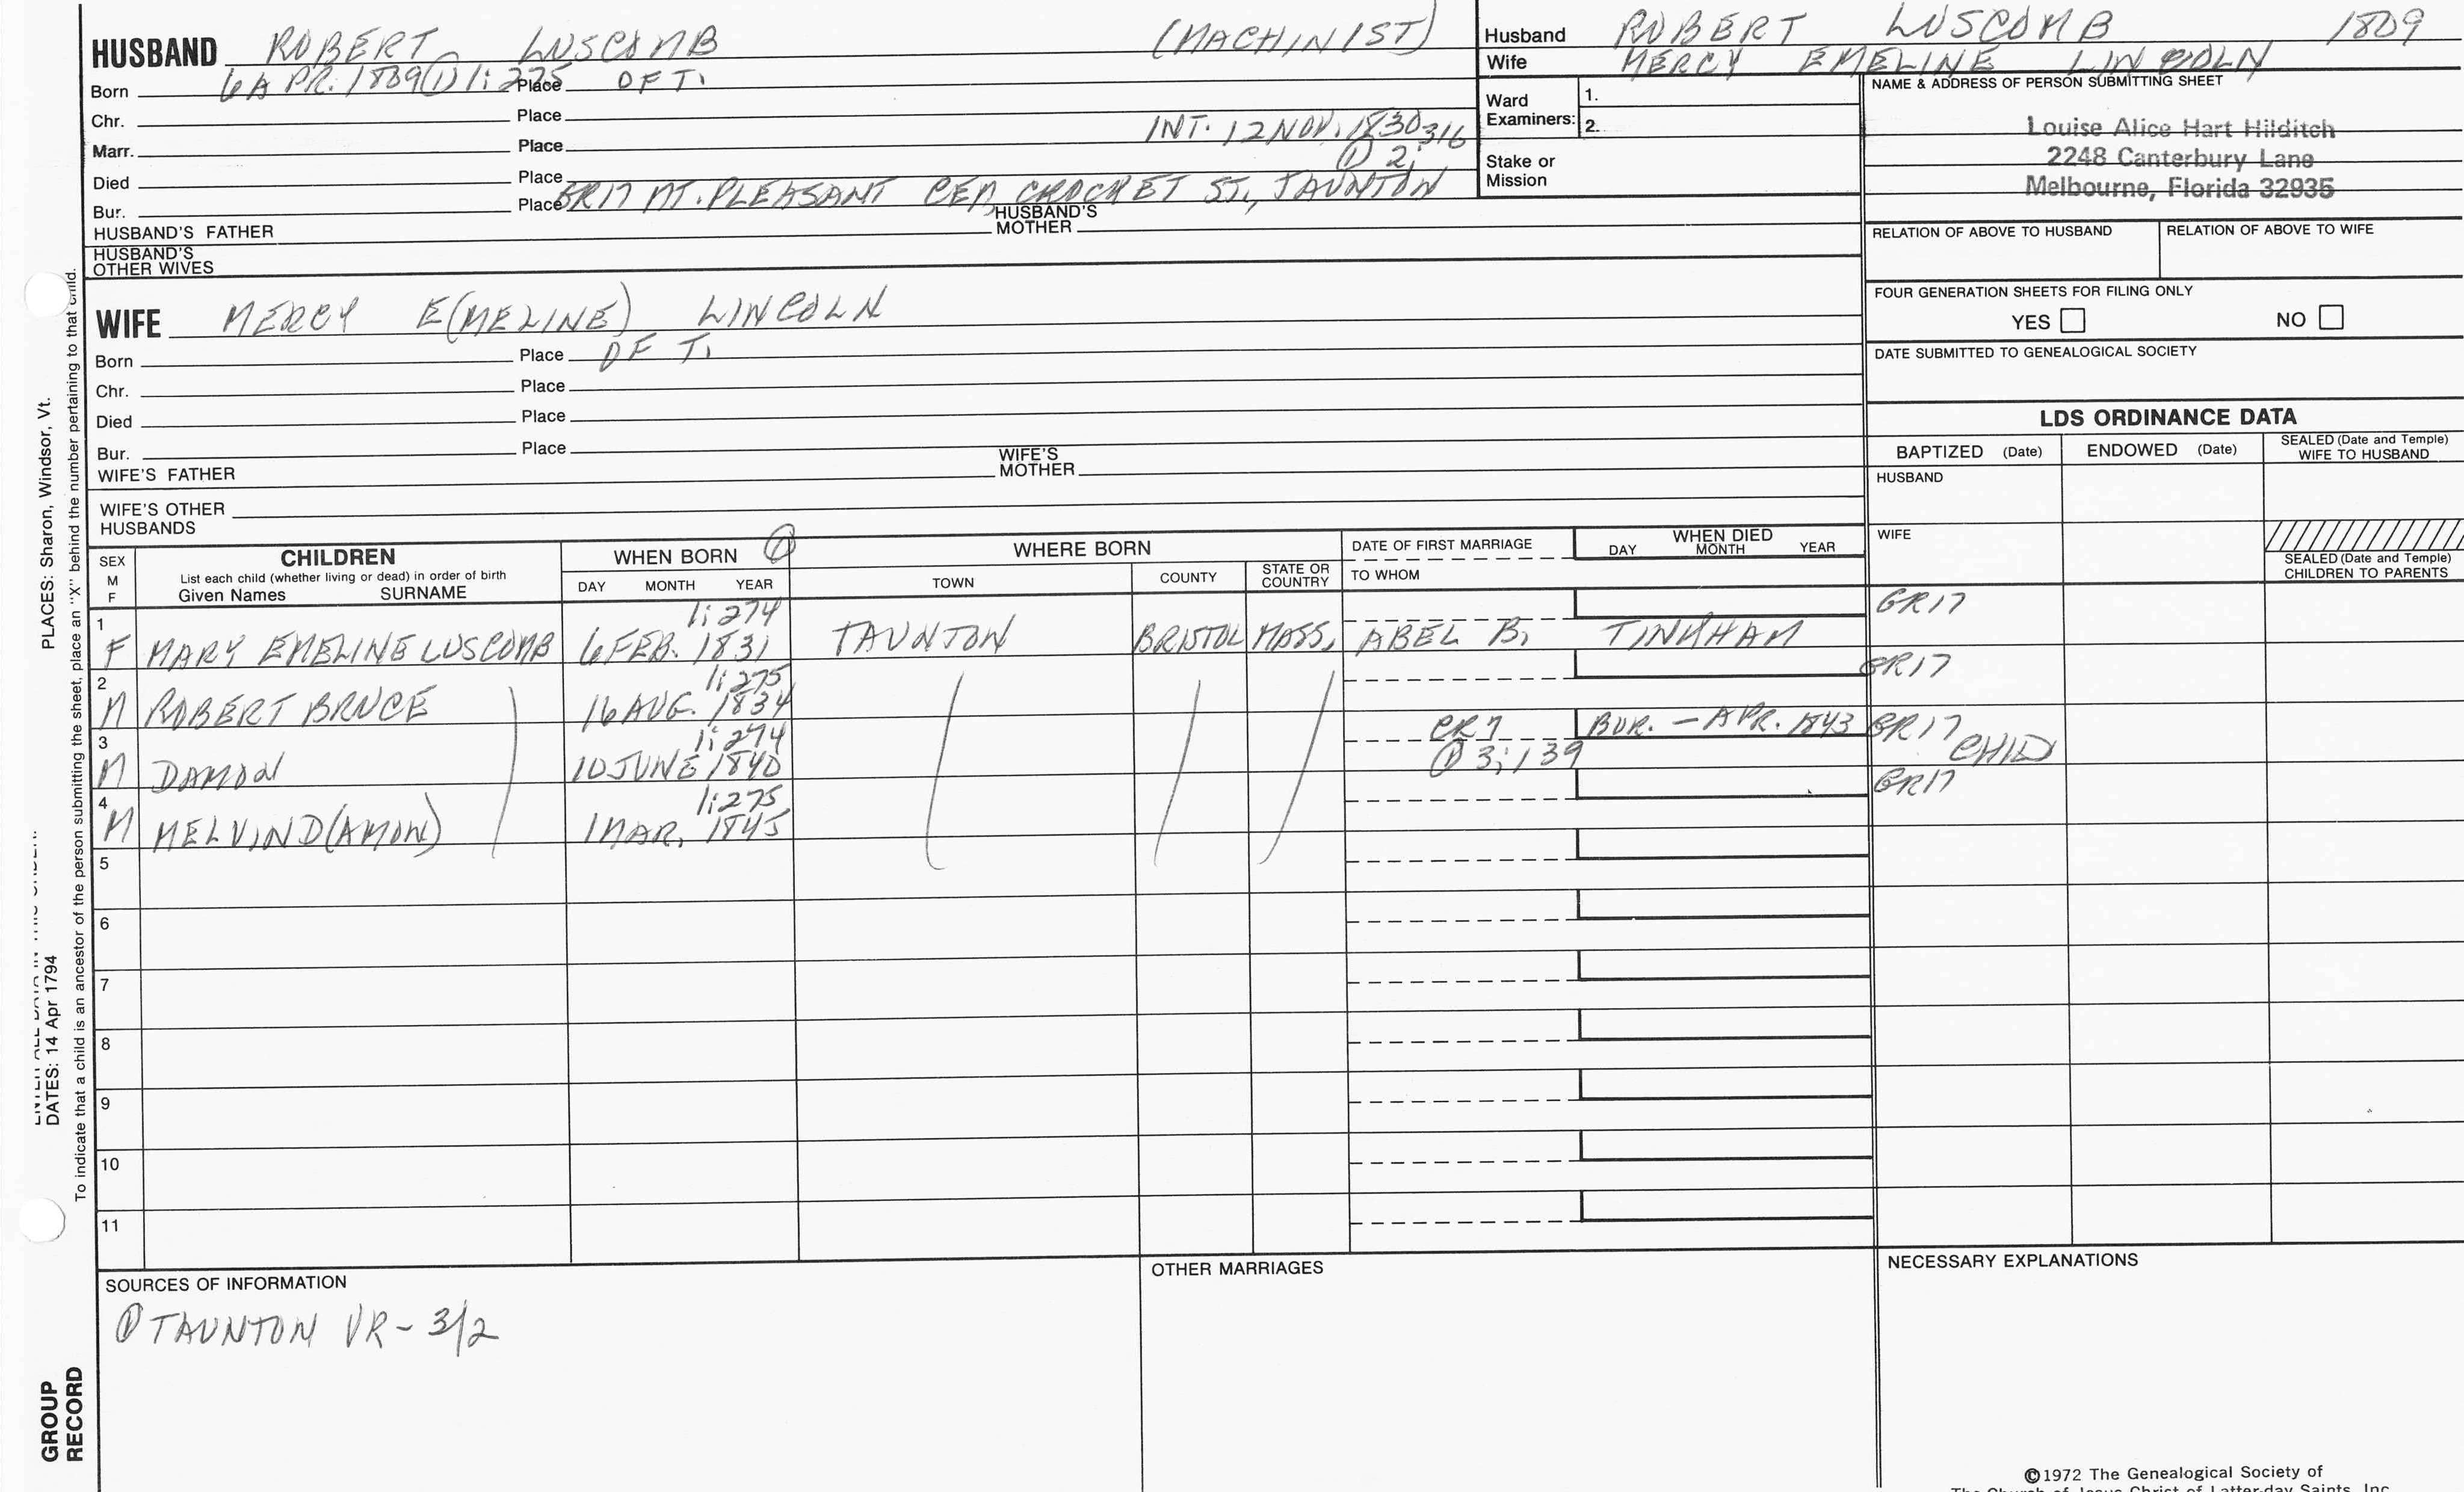 HUSBAND ROBERT LUSCOMB (MACHINIST)
Born 6 APR. 1809 (1) 1:275 Place OF T.
Chr. Place
Marr. Place INT. 12 NOV. 1830 (1) 2:316
Died Place
Bur. Place GR17 MT. PLEASANT CEM, CROCKET ST., TAUNTON
HUSBAND'S FATHER HUSBAND'S MOTHER
HUSBAND'S OTHER WIVES
Husband ROBERT LUSCOMB 1809
Wife MERCY EMELINE LINCOLN
Ward Examiners: 1.
2.
Stake or Mission
NAME & ADDRESS OF PERSON SUBMITTING SHEET
Louise Alice Hart Hilditch
2248 Canterbury Lane
Melbourne, Florida 32935
RELATION OF ABOVE TO HUSBAND RELATION OF ABOVE TO WIFE
FOUR GENERATION SHEETS FOR FILING ONLY
YES NO
DATE SUBMITTED TO GENEALOGICAL SOCIETY
WIFE MERCY E(MELINE) LINCOLN
Born Place OF T.
Chr. Place
Died Place
Bur. Place
WIFE'S FATHER WIFE'S MOTHER
WIFE'S OTHER HUSBANDS
LDS ORDINANCE DATA
BAPTIZED (Date) ENDOWED (Date) SEALED (Date and Temple) WIFE TO HUSBAND
HUSBAND
WIFE
SEALED (Date and Temple) CHILDREN TO PARENTS
SEX M F
CHILDREN
List each child (whether living or dead) in order of birth
Given Names SURNAME
WHEN BORN (1)
DAY MONTH YEAR
WHERE BORN
TOWN COUNTY STATE OR COUNTRY
DATE OF FIRST MARRIAGE
TO WHOM
WHEN DIED
DAY MONTH YEAR
1 1:274 GR17
F MARY EMELINE LUSCOMB 6 FEB. 1831 TAUNTON BRISTOL MASS. ABEL B. TINKHAM
2 1:275 GR17
M ROBERT BRUCE 16 AUG. 1834
3 1:274 CR7 BUR. — APR. 1843 GR17
M DAMON 10 JUNE 1840 (1) 3:139 CHILD
4 1:275 GR17
M MELVIN D(AMON) 1 MAR. 1845
5
6
7
8
9
10
11
SOURCES OF INFORMATION
(1) TAUNTON VR - 3/2
OTHER MARRIAGES
NECESSARY EXPLANATIONS
©1972 The Genealogical Society of
The Church of Jesus Christ of Latter-day Saints, Inc.
PLACES: Sharon, Windsor, Vt.
DATES: 14 Apr 1794
To indicate that a child is an ancestor of the person submitting the sheet, place an "X" behind the number pertaining to that child.
GROUP RECORD